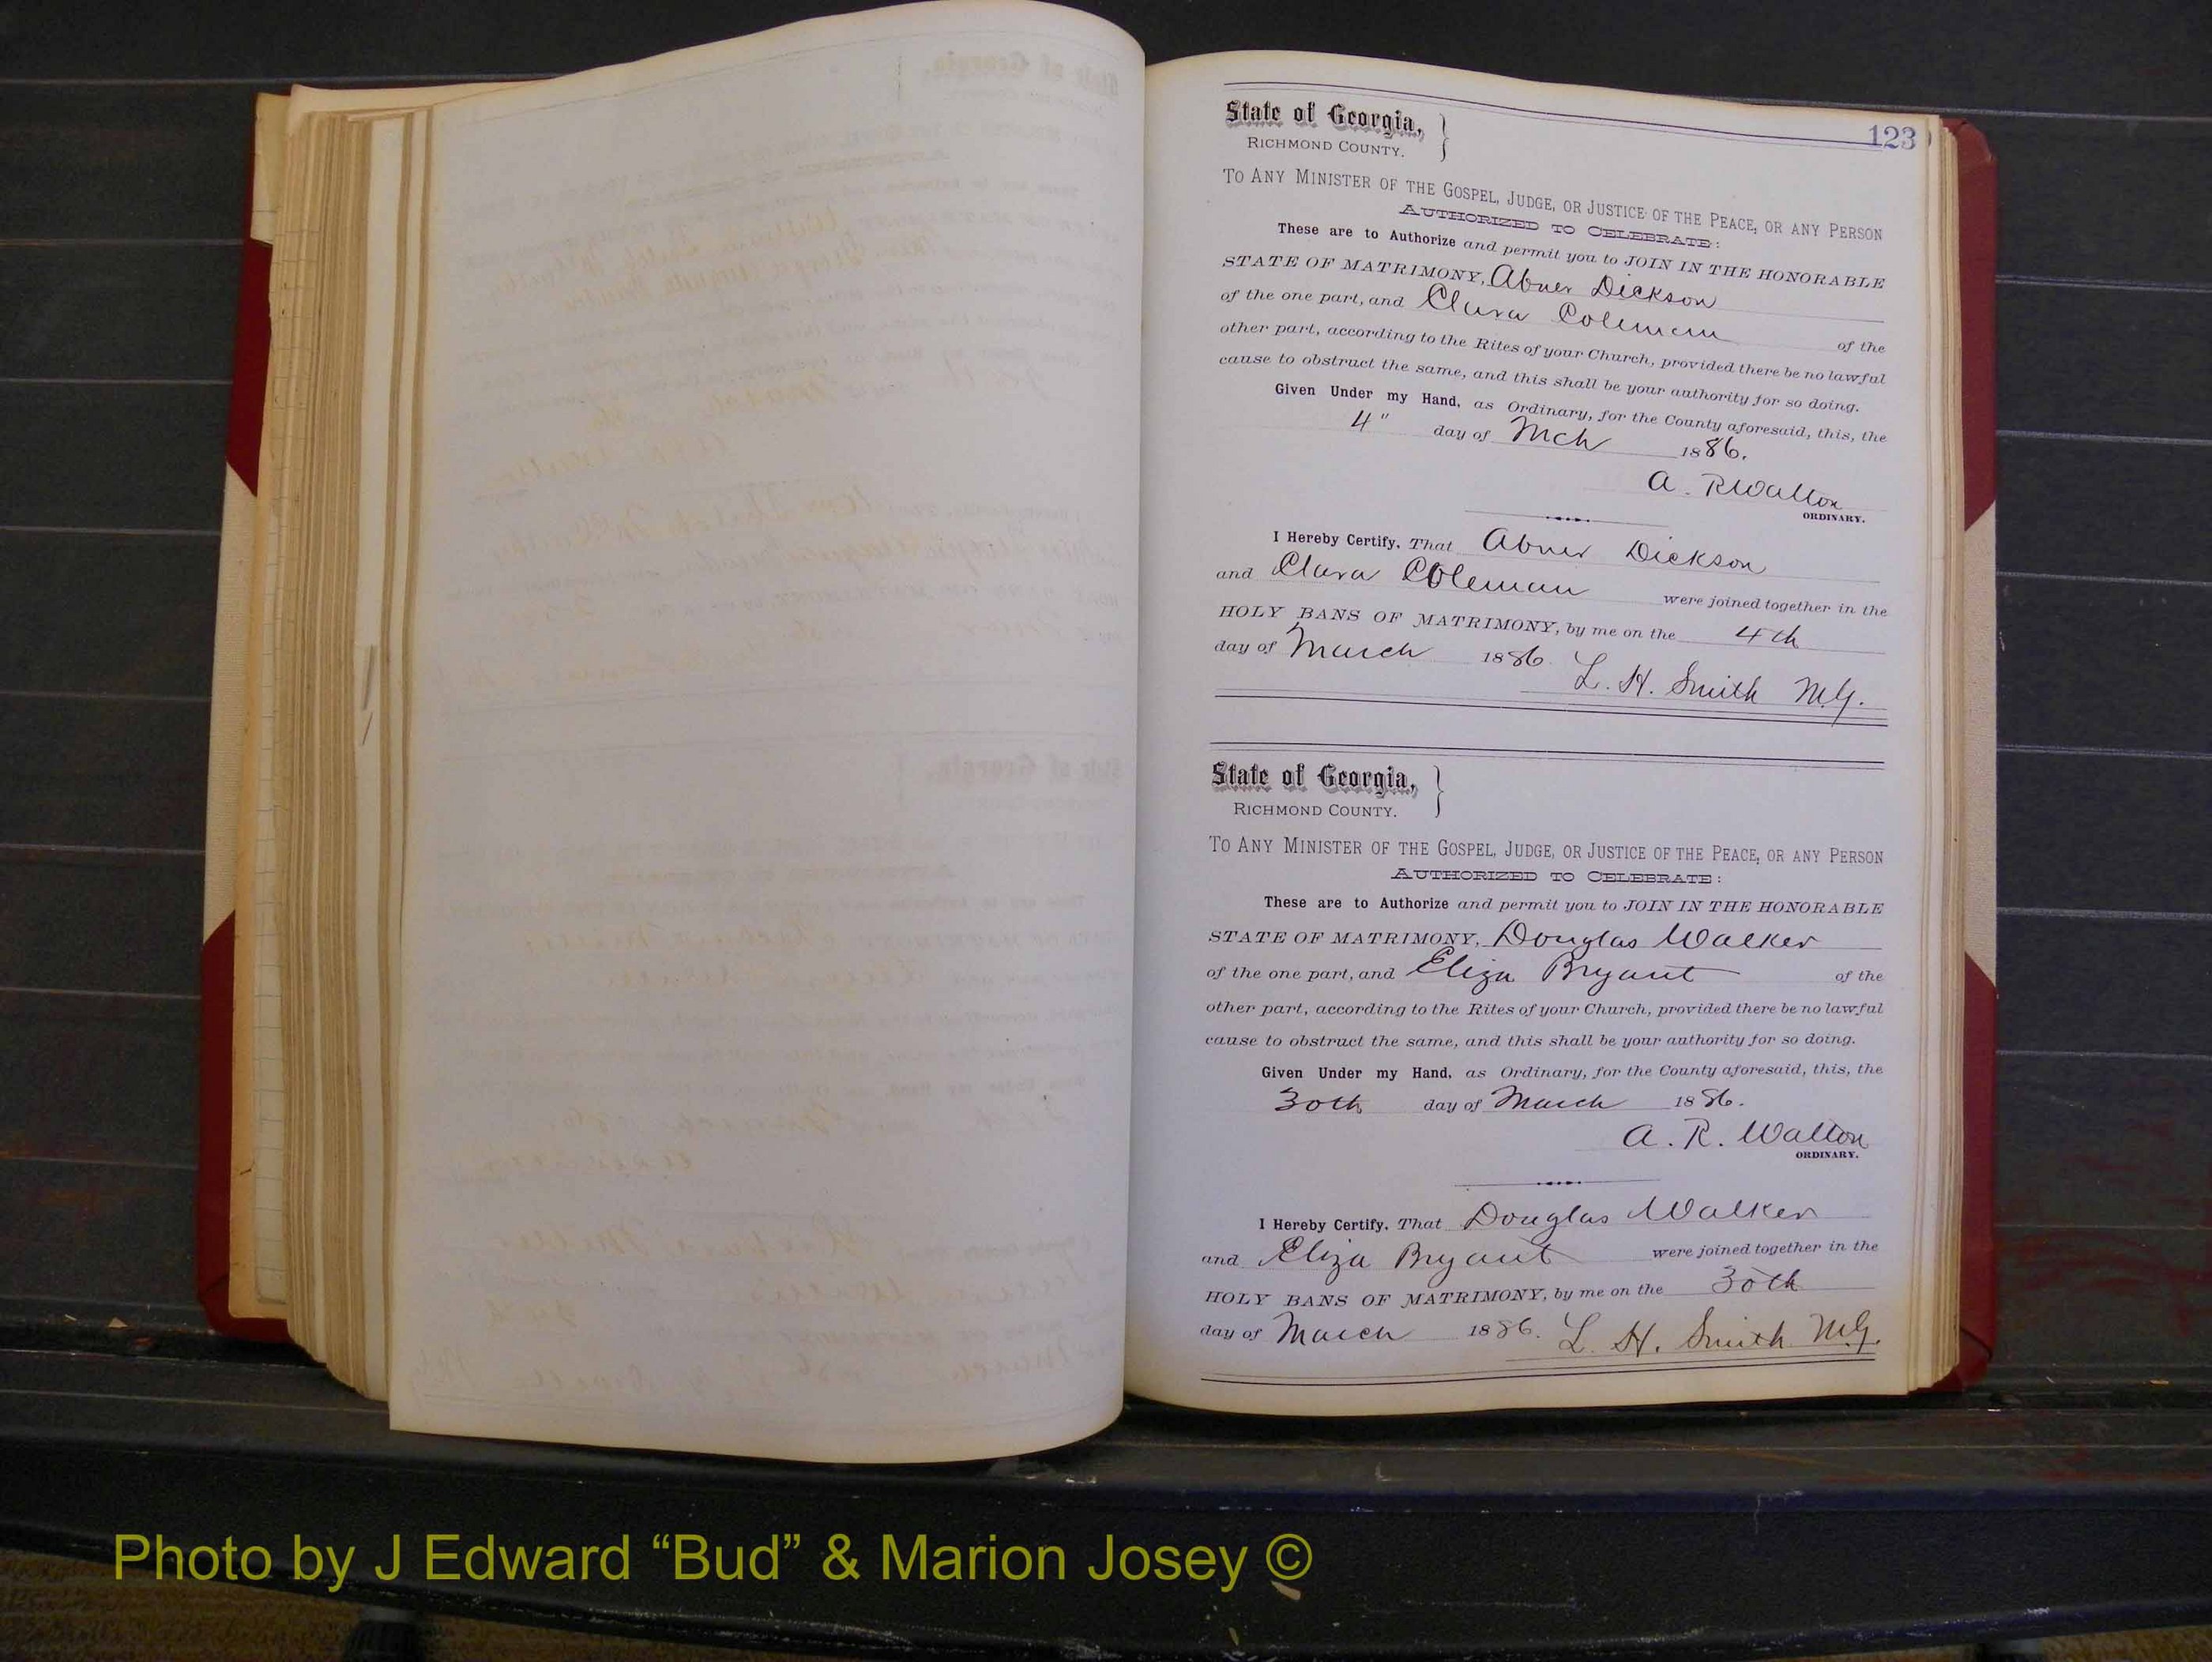 123
State of Georgia,
RICHMOND COUNTY.
TO ANY MINISTER OF THE GOSPEL, JUDGE, OR JUSTICE OF THE PEACE, OR ANY PERSON
AUTHORIZED TO CELEBRATE:
These are to Authorize and permit you to JOIN IN THE HONORABLE
STATE OF MATRIMONY, Abner Dickson
of the one part, and Clara Coleman of the
other part, according to the Rites of your Church, provided there be no lawful
cause to obstruct the same, and this shall be your authority for so doing.
Given Under my Hand, as Ordinary, for the County aforesaid, this, the
4" day of Mch 1886.
A. R Walton
ORDINARY.
I Hereby Certify, That Abner Dickson
and Clara Coleman were joined together in the
HOLY BANS OF MATRIMONY, by me on the 4th
day of March 1886 L. H. Smith M.G.
State of Georgia,
RICHMOND COUNTY.
TO ANY MINISTER OF THE GOSPEL, JUDGE, OR JUSTICE OF THE PEACE, OR ANY PERSON
AUTHORIZED TO CELEBRATE:
These are to Authorize and permit you to JOIN IN THE HONORABLE
STATE OF MATRIMONY, Douglas Walker
of the one part, and Eliza Bryant of the
other part, according to the Rites of your Church, provided there be no lawful
cause to obstruct the same, and this shall be your authority for so doing.
Given Under my Hand, as Ordinary, for the County aforesaid, this, the
30th day of March 1886.
A. R. Walton
ORDINARY.
I Hereby Certify, That Douglas Walker
and Eliza Bryant were joined together in the
HOLY BANS OF MATRIMONY, by me on the 30th
day of March 1886. L. H. Smith M.G.
Photo by J Edward “Bud” & Marion Josey ©